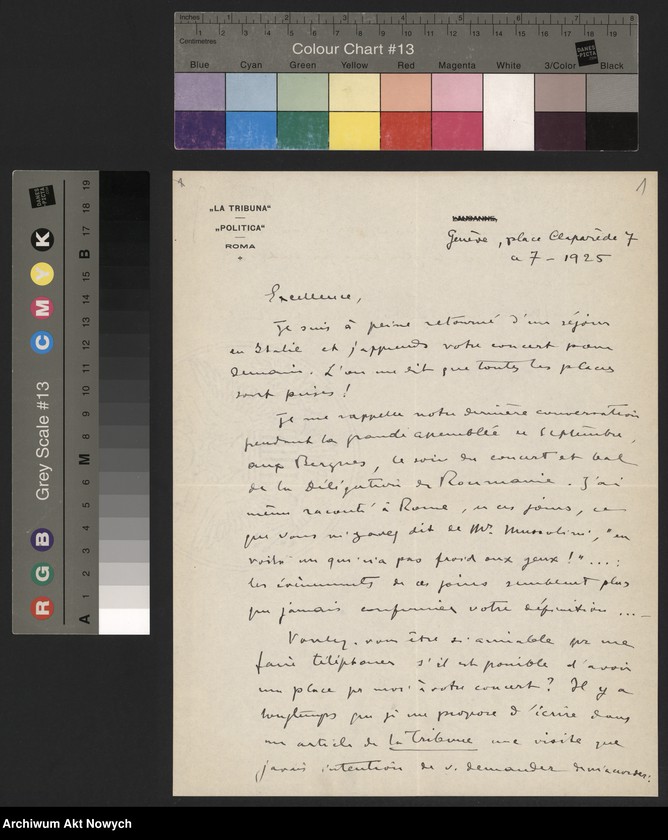 inches 1 2 3 4 5 6 7 8
Centimetres 1 2 3 4 5 6 7 8 9 10 11 12 13 14 15 16 17 18 19
Colour Chart #13
DANES-PICTA
Blue Cyan Green Yellow Red Magenta White 3/Color Black
Grey Scale #13
R G B C M Y K
A 1 2 3 4 5 6 M 8 9 10 11 12 13 14 15 B 17 18 19
1
„LA TRIBUNA“
„POLITICA“
ROMA
LAUSANNE,
Genève, place Claparède 7
a 7 - 1925
Excellence,
Je suis à peine retourné d'un séjour
en Italie et j'apprends votre concert pour
demain. L'on me dit que toutes les places
sont prises!
Je me rappelle notre dernière conversation
pendant la grande assemblée de Septembre,
aux Bergues, le soir du concert et bal
de la Délégation de Roumanie. J'ai
même raconté à Rome, ces jours, ce
que vous m'avez dit de Mr. Mussolini, "en
voilà un qui n'a pas froid aux yeux!" ....:
les événements de ces jours semblent plus
que jamais confirmer votre définition ....
Voulez-vous être si aimable de me
faire téléphoner s'il est possible d'avoir
une place pr moi à votre concert? Il y a
longtemps que je me propose d'écrire dans
un article de la Tribune une visite que
j'avais intention de v. demander
Archiwum Akt Nowych